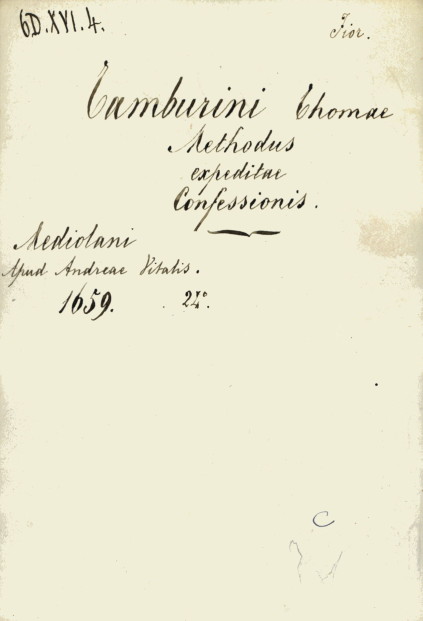 6D.XVI.4.
Fior.
Tamburini Thomae
Methodus
expeditae
Confessionis.
Mediolani
Apud Andreae Vitalis.
1659. 24°.
C